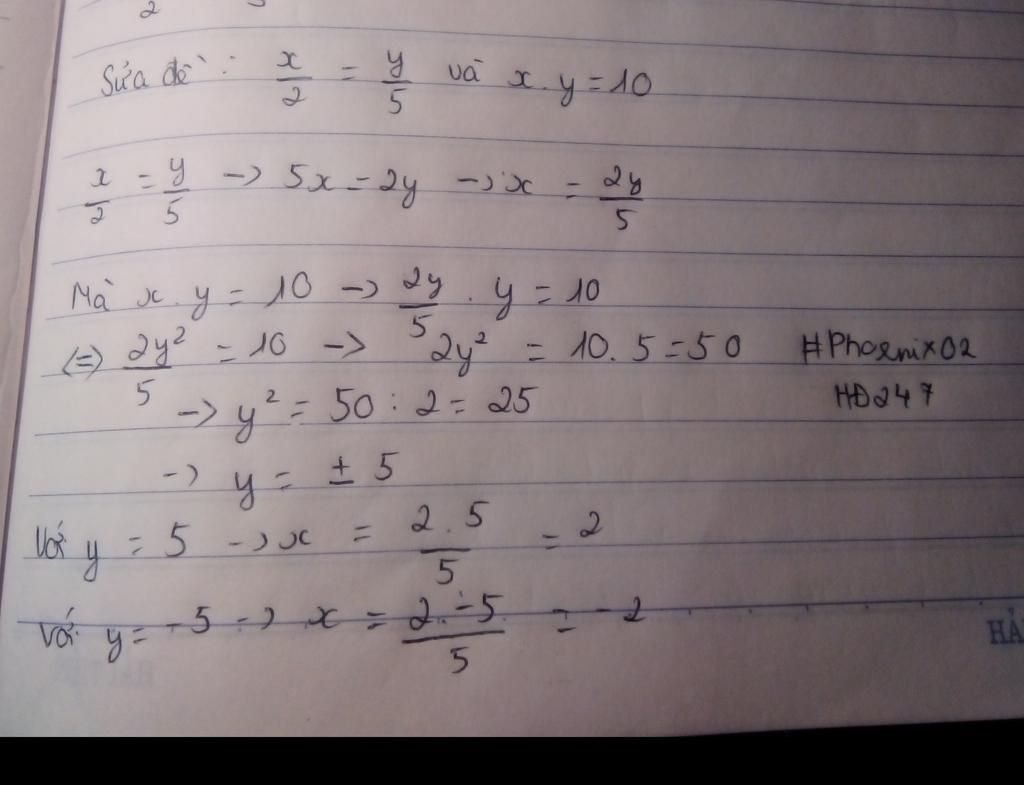 Sửa đề: x/2 = y/5 và x.y=10
x/2 = y/5 -> 5x=2y -> x = 2y/5
Mà x.y = 10 -> 2y/5 . y = 10
<=> 2y²/5 = 10 -> 2y² = 10.5=50 #Phoenix02
-> y² = 50 : 2 = 25 HĐ247
-> y = ± 5
Với y = 5 -> x = 2.5/5 = 2
Với y = -5 -> x = 2.-5/5 = -2